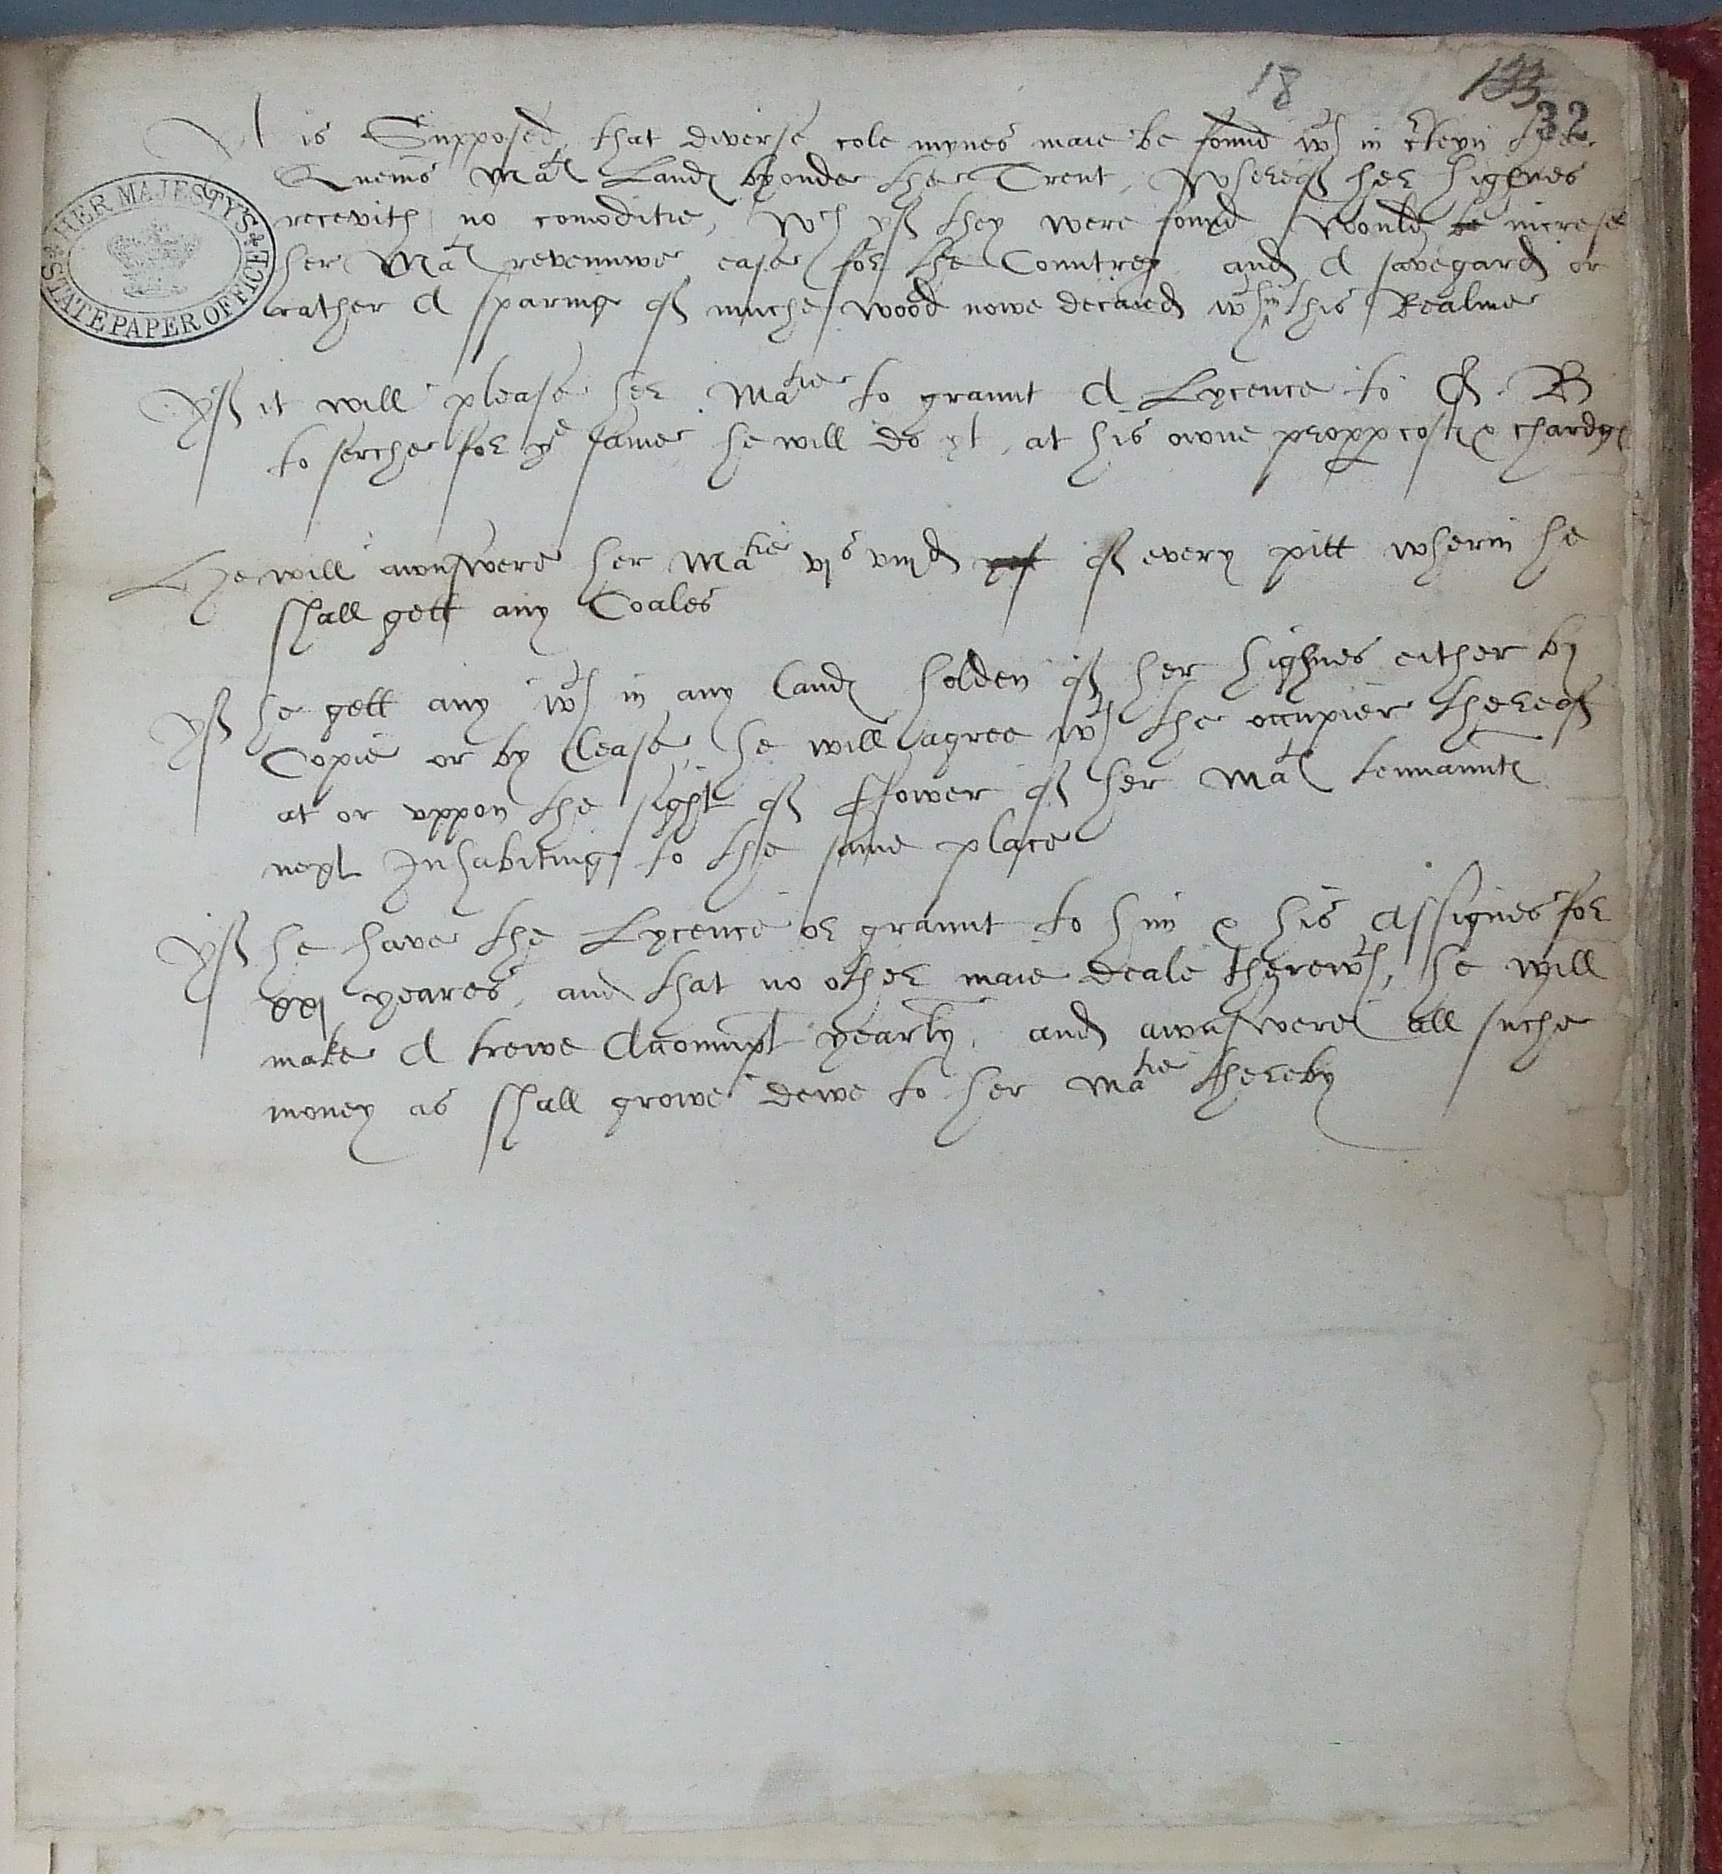 18 133
32
It is Supposed, that diverse cole mynes maie be found wth in the
Quenes Mates Landes byonde the Trent, Whereof her highnes
recevith no comoditie, Wch yf they were found Would be increse
her Mates revennwe ease for the Countrey and A savegard or
rather A sparing of muche wood nowe decaied wthin this Realme
HER MAJESTY'S STATE PAPER OFFICE
Yf it will please her Matie to graunt A Lycence to G. B
to serche for ye same he will do yt, at his owne propp costes & chardges
He will awnswere her Matie vjs viijd of every pitt wherin he
shall gett any Coales
Yf he gett any wth in any Landes holden of her highnes either by
Copie or by Lease, he will agree wth the occupier thereof
at or vppon the sight of ffower of her Mates tennanntes
next Inhabiting to the same place
Yf he have the Lycence or graunt to him & his Assignes for
xxj yeares, and that no other maie deale therewth, he will
make A trewe Accompt yearly, and awnswere all suche
money as shall growe dewe to her Matie thereby